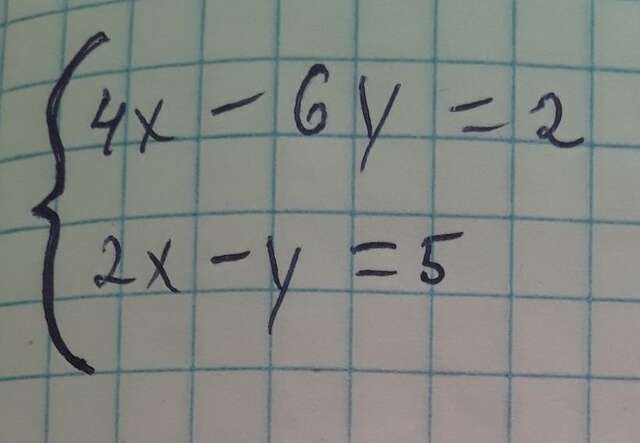 4x - 6y = 2
2x - y = 5